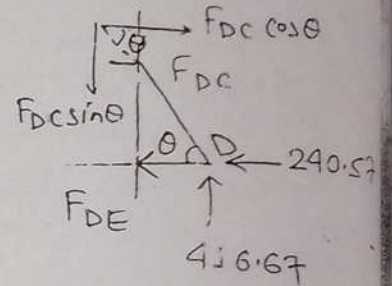 θ
F_DC cosθ
F_DC
F_DC sinθ
θ D
240.57
F_DE
416.67